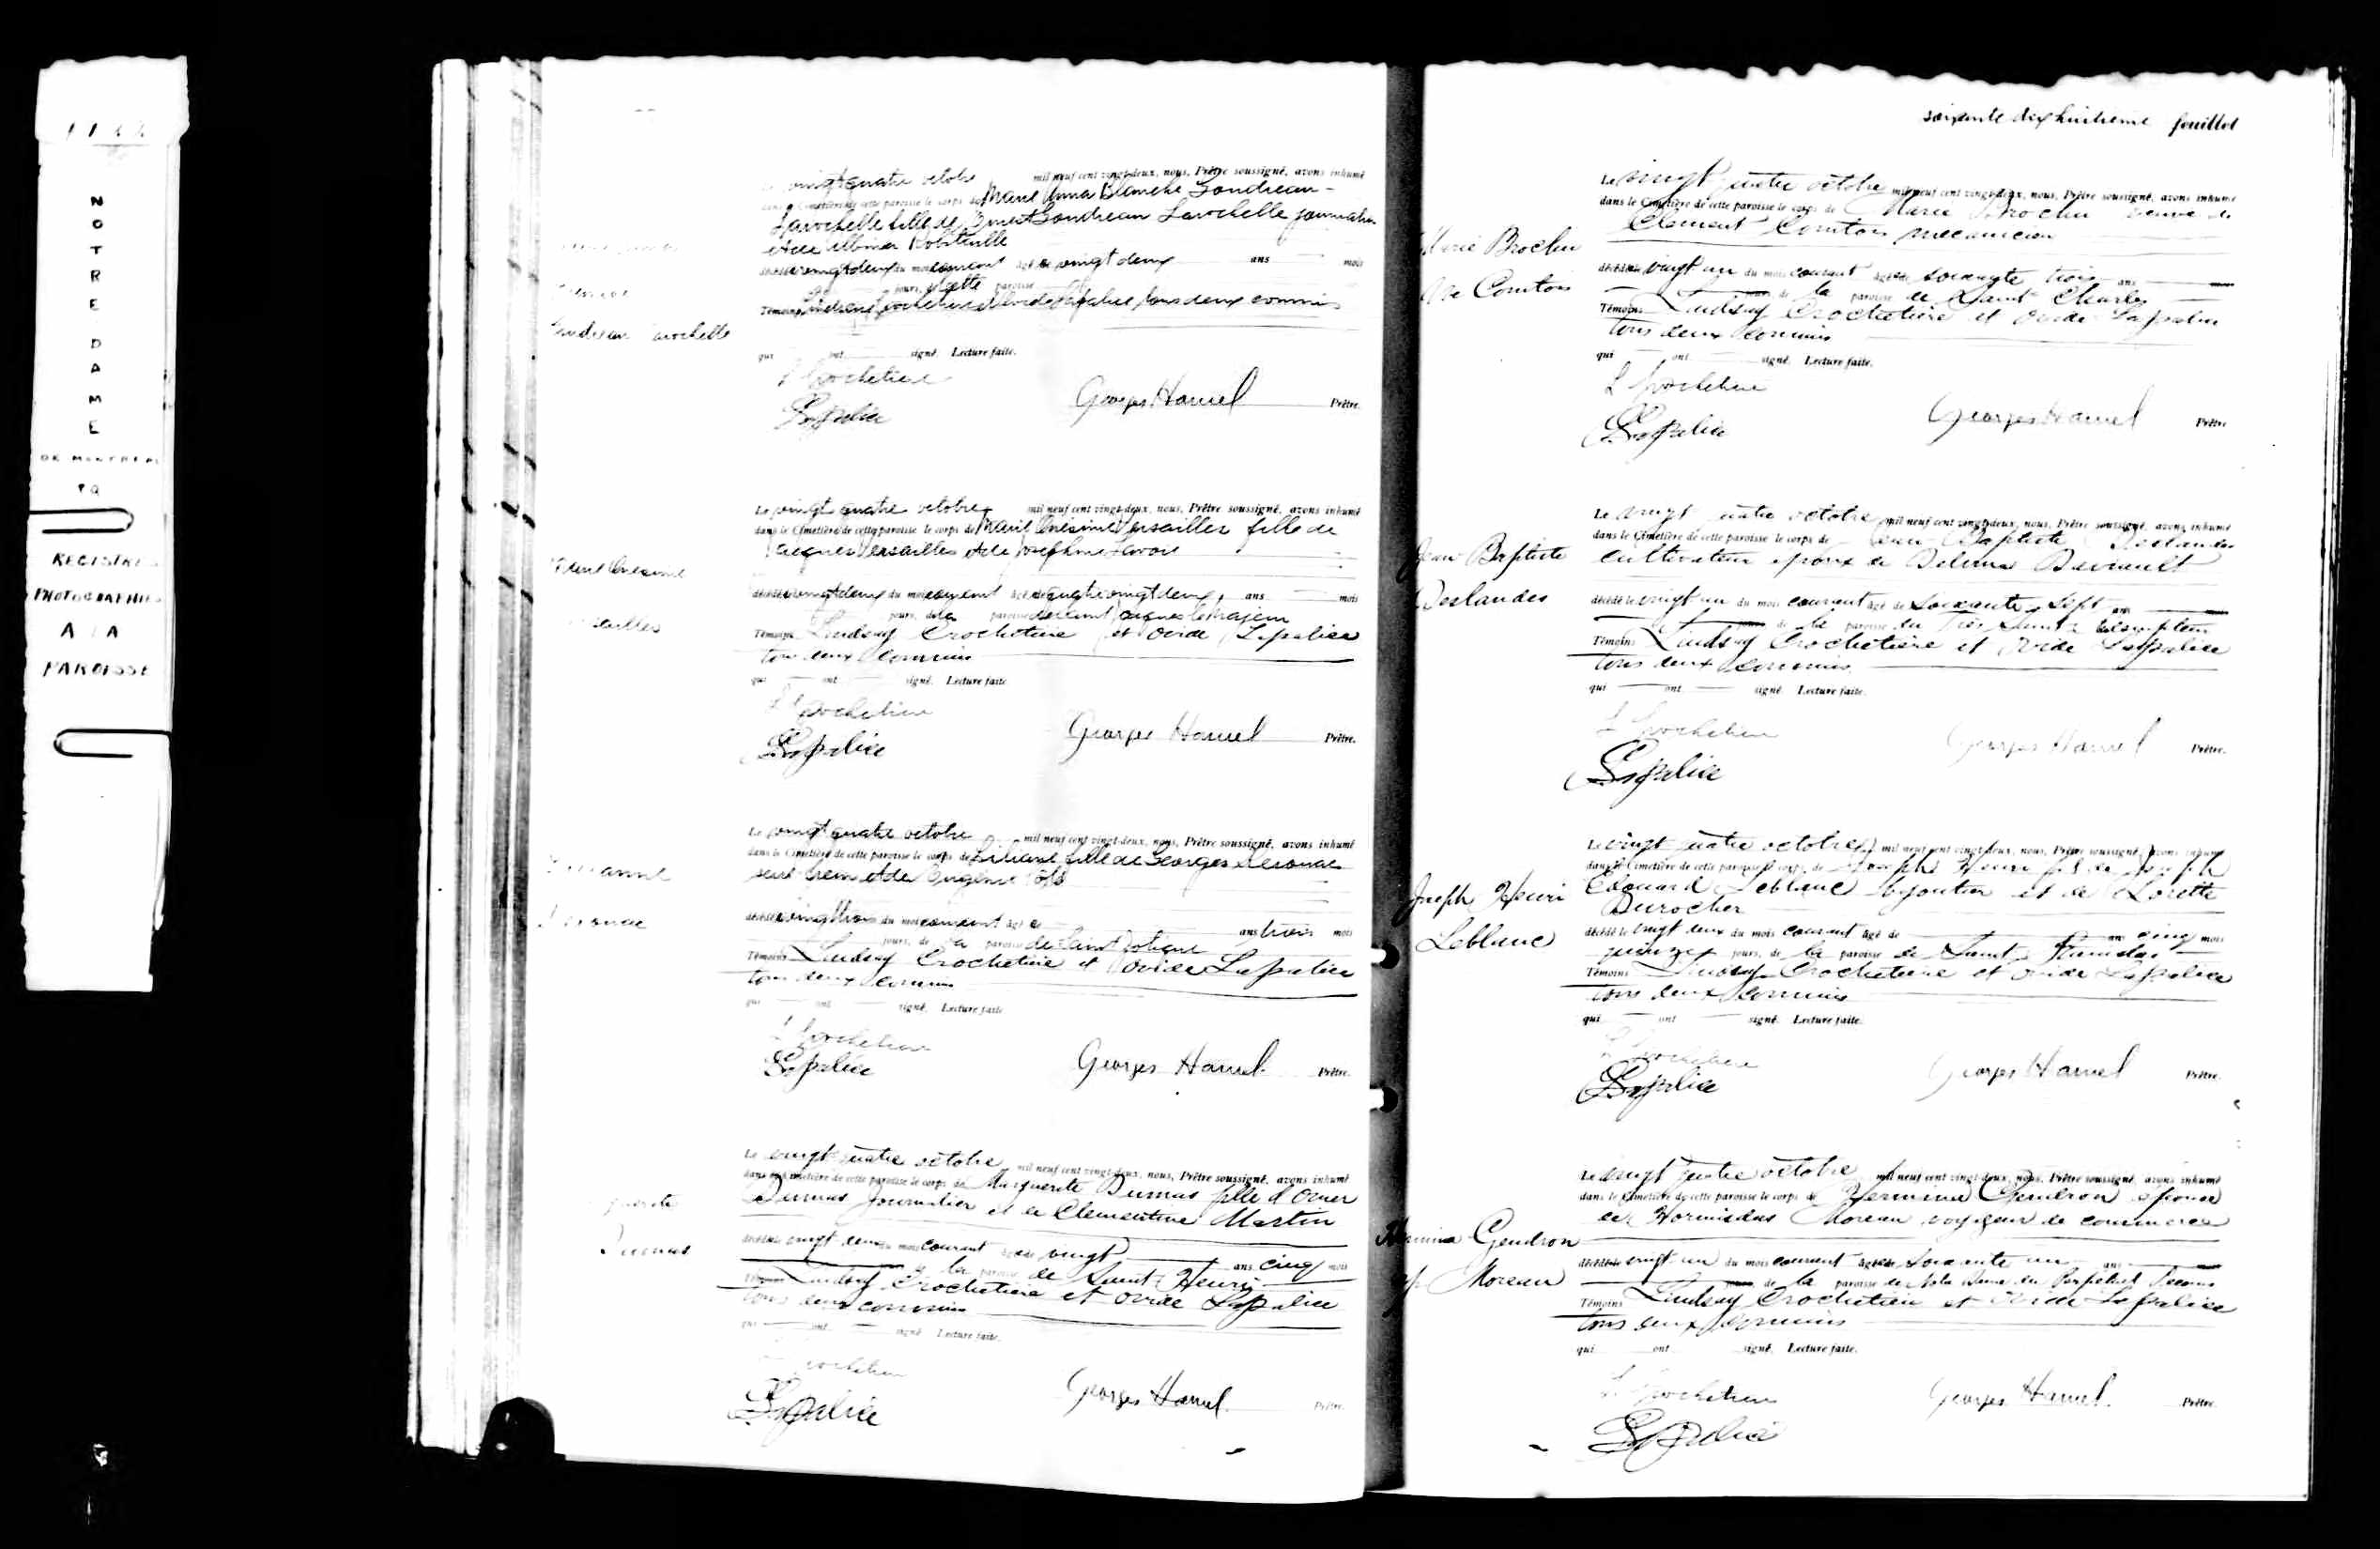 NOTRE DAME
DE MONTREAL
PQ
REGISTRE
PHOTOGRAPHIE
A LA
PAROISSE
vingt quatre octobre mil neuf cent vingt-deux, nous, Prêtre soussigné, avons inhumé
dans le Cimetière de cette paroisse le corps de Marie Anna Blanche Gondreau
Larochelle fille de Gondreau Larochelle journalier
et de Robitaille
vingt deux du mois courant âgée vingt deux ans mois
jours, de cette paroisse
Témoins Crochetiere et Ovide Lapalice tous deux commis
Gondreau Larochelle
qui ont signé. Lecture faite.
L Crochetiere
Lapalice
Georges Hamel Prêtre.
Le vingt quatre octobre mil neuf cent vingt-deux, nous, Prêtre soussigné, avons inhumé
dans le Cimetière de cette paroisse le corps de Marie Onésime Versailles fille de
Jacques Versailles et de Josephine
Marie Onésime
décédée vingt deux du mois courant âgée de quatre vingt deux ans mois
jours, de la paroisse de Saint Jacques le Majeur
Témoins Lindsay Crochetiere et Ovide Lapalice
tous deux commis
qui ont signé. Lecture faite
L Crochetiere
Lapalice
Georges Hamel Prêtre.
Le vingt quatre octobre mil neuf cent vingt-deux, nous, Prêtre soussigné, avons inhumé
dans le Cimetière de cette paroisse le corps de fille de Georges
et de Eugénie
du mois courant âgé de ans trois mois
jours, de la paroisse de Saint
Témoins Lindsay Crochetiere et Ovide Lapalice
tous deux commis
qui ont signé. Lecture faite
L Crochetiere
Lapalice
Georges Hamel. Prêtre.
Le vingt quatre octobre mil neuf cent vingt-deux, nous, Prêtre soussigné, avons inhumé
dans le Cimetière de cette paroisse le corps de Marguerite Dumas fille d'Omer
Dumas journalier et de Clementine Martin
Dumas
décédée vingt deux du mois courant âgée de vingt ans cinq mois
de la paroisse de Saint Henri
Témoins Lindsay Crochetiere et Ovide Lapalice
tous deux commis
qui ont signé. Lecture faite.
Crochetiere
Lapalice
Georges Hamel. Prêtre.
soixante dix huitieme feuillet
Le vingt quatre octobre mil neuf cent vingt-deux, nous, Prêtre soussigné, avons inhumé
dans le Cimetière de cette paroisse le corps de Marie Brochu veuve de
Clement Comtois mecanicien
Marie Brochu
Ve Comtois
décédée vingt un du mois courant âgée de soixante trois ans
de la paroisse de Saint Charles
Témoins Lindsay Crochetiere et Ovide Lapalice
tous deux commis
qui ont signé. Lecture faite.
L Crochetiere
Lapalice
Georges Hamel Prêtre
Le vingt quatre octobre mil neuf cent vingt-deux, nous, Prêtre soussigné, avons inhumé
dans le Cimetière de cette paroisse le corps de Jean Baptiste Deslandes
cultivateur epoux de Delima
Jean Baptiste
Deslandes
décédé le vingt un du mois courant âgé de soixante sept ans
de la paroisse du Très Saint Rédempteur
Témoins Lindsay Crochetiere et Ovide Lapalice
tous deux commis
qui ont signé. Lecture faite.
L Crochetiere
Lapalice
Georges Hamel Prêtre.
Le vingt quatre octobre mil neuf cent vingt-deux, nous, Prêtre soussigné, avons inhumé
dans le Cimetière de cette paroisse le corps de Joseph Henri fils de Joseph
Edouard Leblanc bijoutier et de Lorette
Durocher
Joseph Henri
Leblanc
décédé le vingt deux du mois courant âgé de ans cinq mois
quinze jours, de la paroisse de Saint Stanislas
Témoins Lindsay Crochetiere et Ovide Lapalice
tous deux commis
qui ont signé. Lecture faite.
L Crochetiere
Lapalice
Georges Hamel Prêtre.
Le vingt quatre octobre mil neuf cent vingt-deux, nous, Prêtre soussigné, avons inhumé
dans le Cimetière de cette paroisse le corps de Hermina Gendron epouse
de Hormisdas Moreau voyageur de commerce
Hermina Gendron
ep. Moreau
décédée vingt un du mois courant âgée de soixante un ans
de la paroisse de Notre Dame du Perpetuel Secours
Témoins Lindsay Crochetiere et Ovide Lapalice
tous deux commis
qui ont signé. Lecture faite.
L Crochetiere
Lapalice
Georges Hamel. Prêtre.